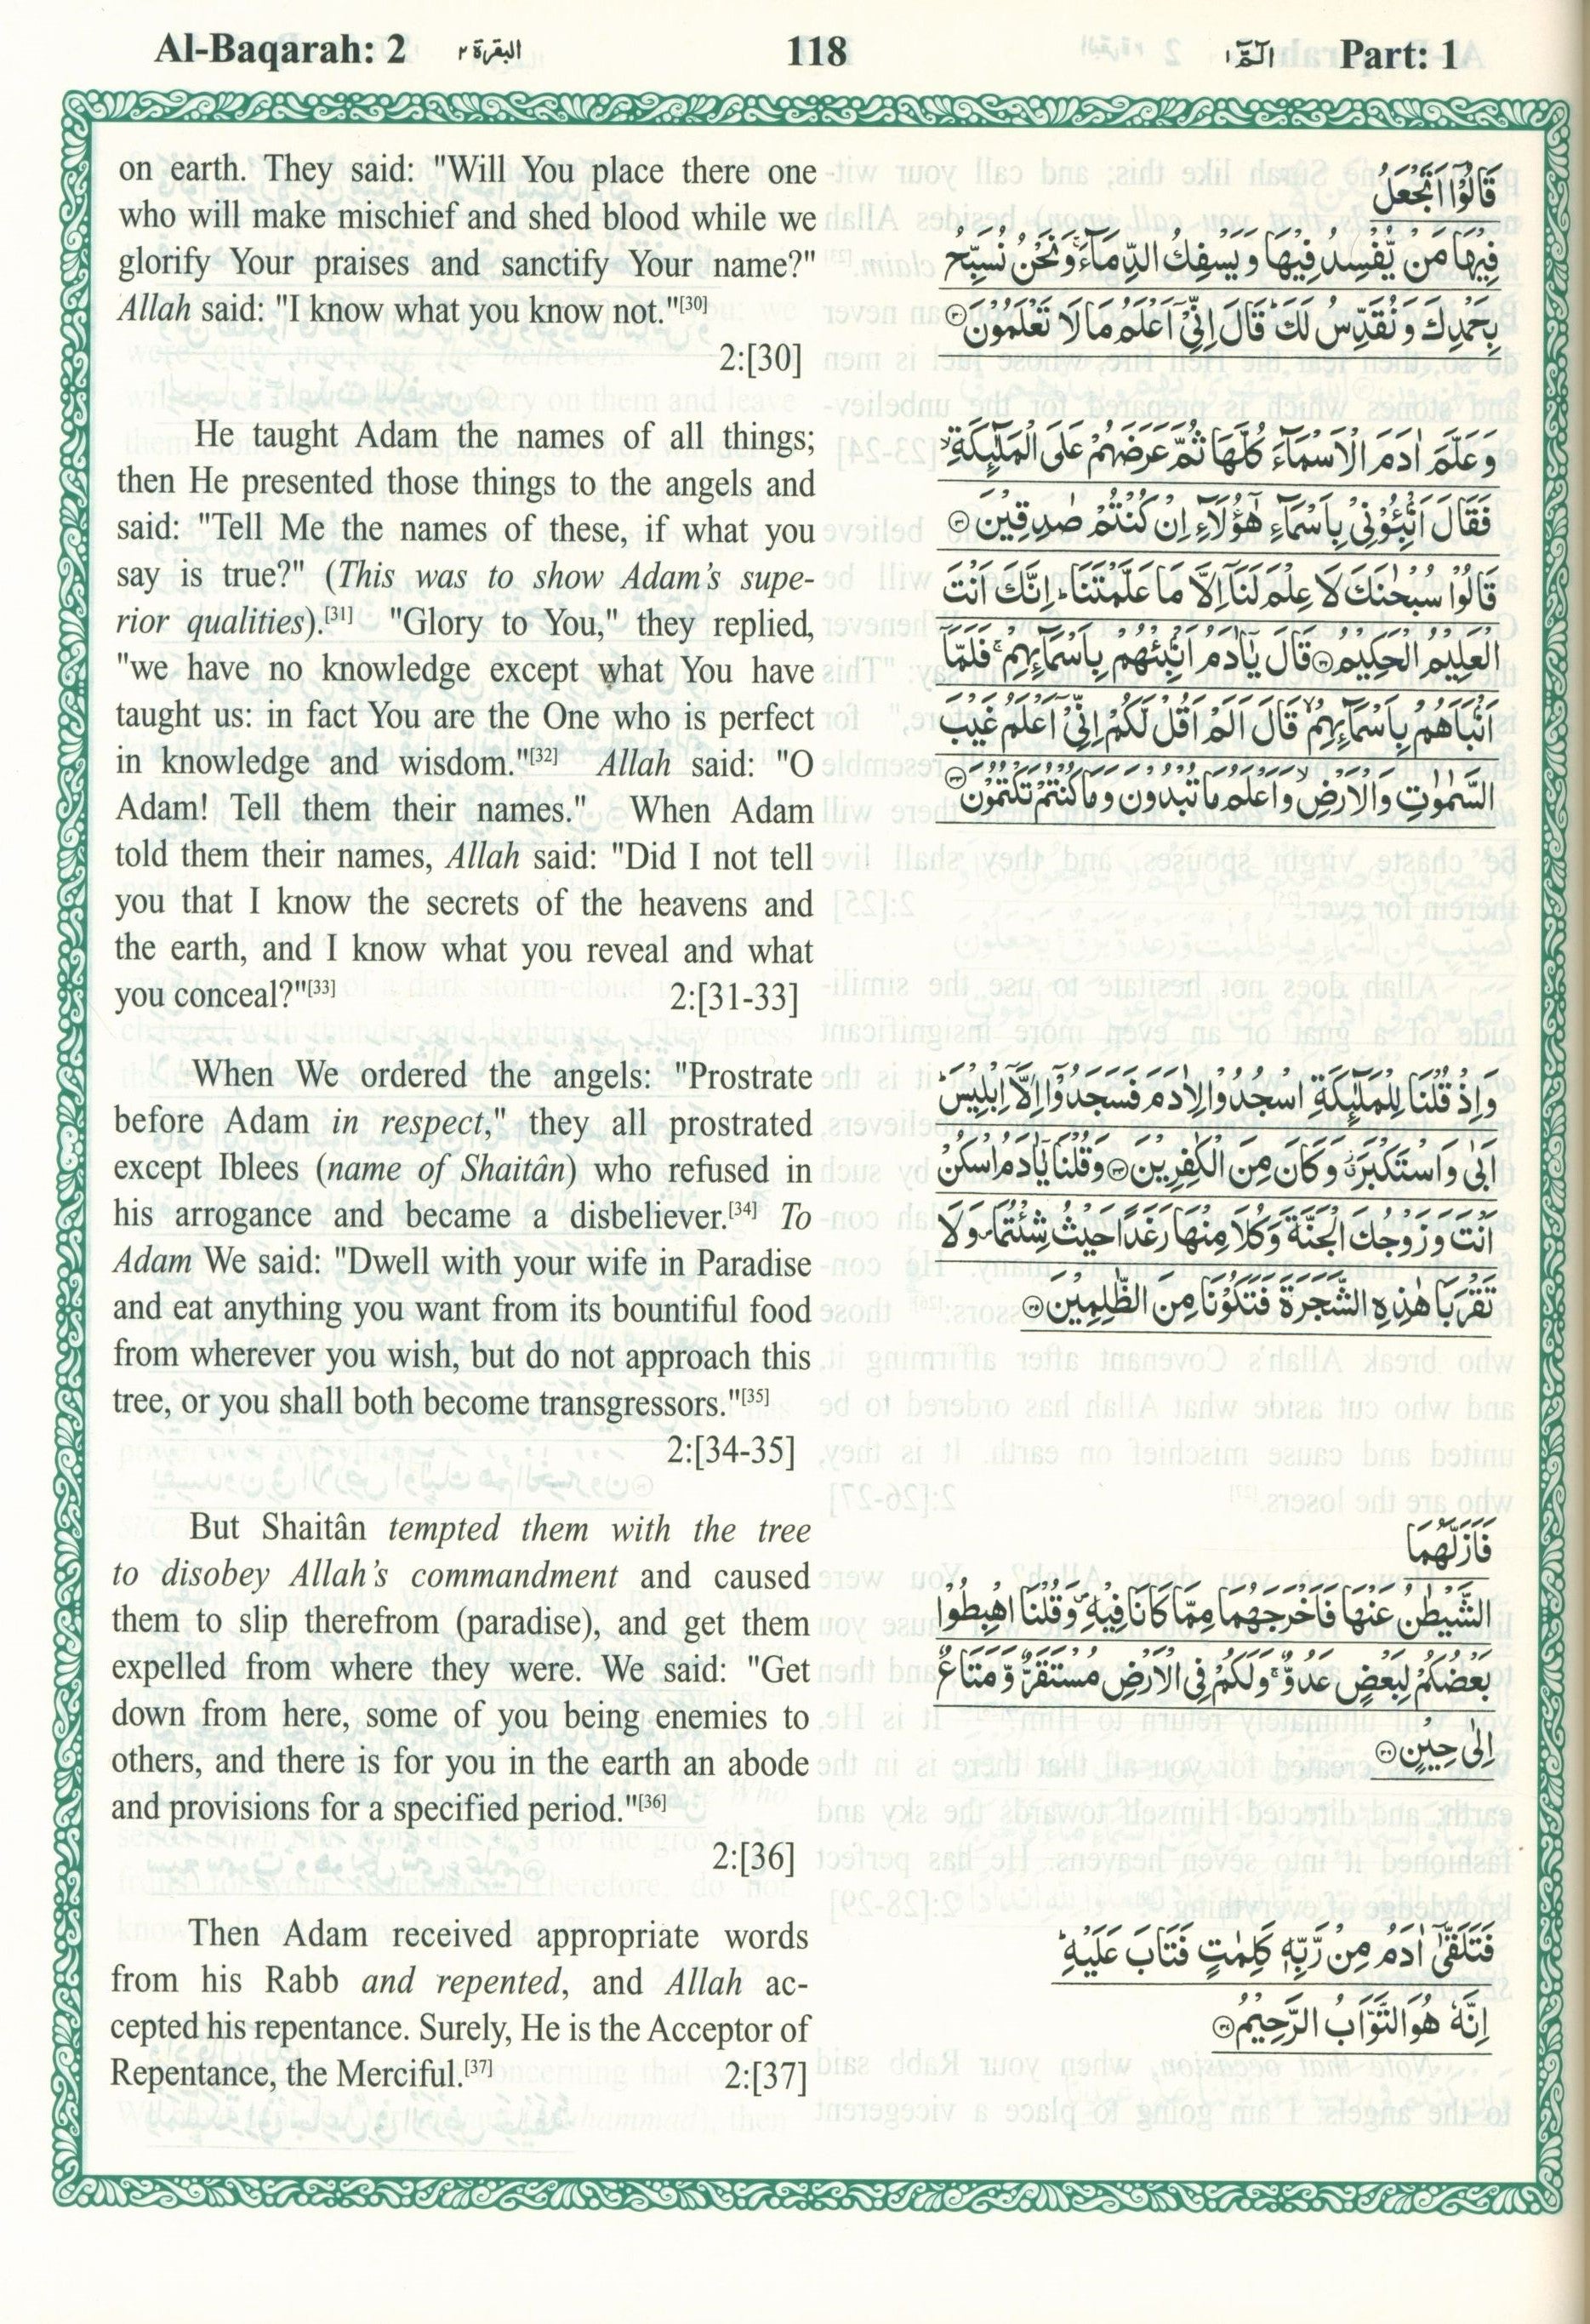 Al-Baqarah: 2 البقرة ٢ 118 الٓمّٓ ١ Part: 1
on earth. They said: "Will You place there one
who will make mischief and shed blood while we
glorify Your praises and sanctify Your name?"
Allah said: "I know what you know not."[30]
2:[30]
He taught Adam the names of all things;
then He presented those things to the angels and
said: "Tell Me the names of these, if what you
say is true?" (This was to show Adam's supe-
rior qualities).[31] "Glory to You," they replied,
"we have no knowledge except what You have
taught us: in fact You are the One who is perfect
in knowledge and wisdom."[32] Allah said: "O
Adam! Tell them their names." When Adam
told them their names, Allah said: "Did I not tell
you that I know the secrets of the heavens and
the earth, and I know what you reveal and what
you conceal?"[33] 2:[31-33]
When We ordered the angels: "Prostrate
before Adam in respect," they all prostrated
except Iblees (name of Shaitân) who refused in
his arrogance and became a disbeliever.[34] To
Adam We said: "Dwell with your wife in Paradise
and eat anything you want from its bountiful food
from wherever you wish, but do not approach this
tree, or you shall both become transgressors."[35]
2:[34-35]
But Shaitân tempted them with the tree
to disobey Allah's commandment and caused
them to slip therefrom (paradise), and get them
expelled from where they were. We said: "Get
down from here, some of you being enemies to
others, and there is for you in the earth an abode
and provisions for a specified period."[36]
2:[36]
Then Adam received appropriate words
from his Rabb and repented, and Allah ac-
cepted his repentance. Surely, He is the Acceptor of
Repentance, the Merciful.[37] 2:[37]
قَالُوْٓا اَتَجْعَلُ
فِيْهَا مَنْ يُّفْسِدُ فِيْهَا وَيَسْفِكُ الدِّمَآءَ ۚ وَنَحْنُ نُسَبِّحُ
بِحَمْدِكَ وَنُقَدِّسُ لَكَ ؕ قَالَ اِنِّيْٓ اَعْلَمُ مَا لَا تَعْلَمُوْنَ ۝٣٠
وَعَلَّمَ اٰدَمَ الْاَسْمَآءَ كُلَّهَا ثُمَّ عَرَضَهُمْ عَلَى الْمَلٰٓئِكَةِ ۙ
فَقَالَ اَنْۢبِـُٔوْنِيْ بِاَسْمَآءِ هٰٓؤُلَآءِ اِنْ كُنْتُمْ صٰدِقِيْنَ ۝٣١
قَالُوْا سُبْحٰنَكَ لَا عِلْمَ لَنَآ اِلَّا مَا عَلَّمْتَنَا ؕ اِنَّكَ اَنْتَ
الْعَلِيْمُ الْحَكِيْمُ ۝٣٢ قَالَ يٰٓاٰدَمُ اَنْۢبِئْهُمْ بِاَسْمَآئِهِمْ ۚ فَلَمَّآ
اَنْۢبَاَهُمْ بِاَسْمَآئِهِمْ ۙ قَالَ اَلَمْ اَقُلْ لَّكُمْ اِنِّيْٓ اَعْلَمُ غَيْبَ
السَّمٰوٰتِ وَالْاَرْضِ ۙ وَاَعْلَمُ مَا تُبْدُوْنَ وَمَا كُنْتُمْ تَكْتُمُوْنَ ۝٣٣
وَاِذْ قُلْنَا لِلْمَلٰٓئِكَةِ اسْجُدُوْا لِاٰدَمَ فَسَجَدُوْٓا اِلَّآ اِبْلِيْسَ ؕ
اَبٰى وَاسْتَكْبَرَ ؗ وَكَانَ مِنَ الْكٰفِرِيْنَ ۝٣٤ وَقُلْنَا يٰٓاٰدَمُ اسْكُنْ
اَنْتَ وَزَوْجُكَ الْجَنَّةَ وَكُلَا مِنْهَا رَغَدًا حَيْثُ شِئْتُمَا ۪ وَلَا
تَقْرَبَا هٰذِهِ الشَّجَرَةَ فَتَكُوْنَا مِنَ الظّٰلِمِيْنَ ۝٣٥
فَاَزَلَّهُمَا
الشَّيْطٰنُ عَنْهَا فَاَخْرَجَهُمَا مِمَّا كَانَا فِيْهِ ۪ وَقُلْنَا اهْبِطُوْا
بَعْضُكُمْ لِبَعْضٍ عَدُوٌّ ۚ وَلَكُمْ فِي الْاَرْضِ مُسْتَقَرٌّ وَّمَتَاعٌ
اِلٰى حِيْنٍ ۝٣٦
فَتَلَقّٰٓى اٰدَمُ مِنْ رَّبِّهٖ كَلِمٰتٍ فَتَابَ عَلَيْهِ ؕ
اِنَّهٗ هُوَ التَّوَّابُ الرَّحِيْمُ ۝٣٧